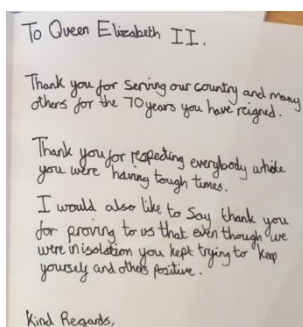 To Queen Elizabeth II.
Thank you for serving our country and many
others for the 70 years you have reigned.
Thank you for respecting everybody while
you were having tough times.
I would also like to say thank you
for proving to us that even though we
were in isolation you kept trying to keep
yourself and others positive.
Kind Regards,